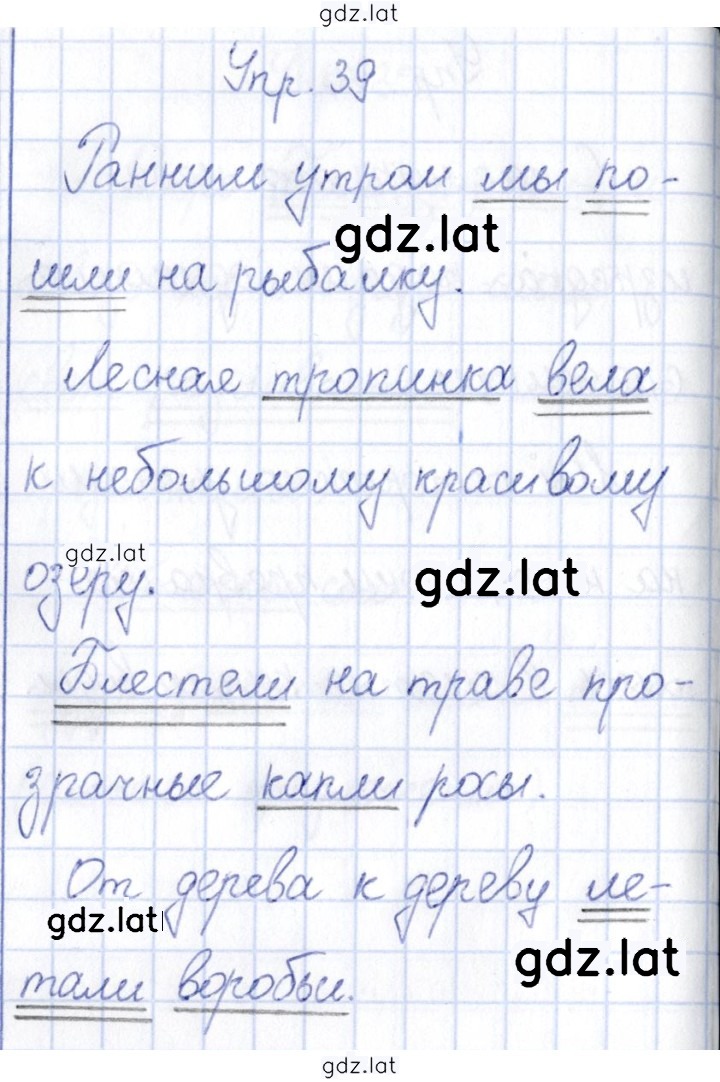 gdz.lat
Упр. 39
Ранним утром мы по-
gdz.lat
шли на рыбалку.
Лесная тропинка вела
к небольшому красивому
gdz.lat
озеру.
gdz.lat
Блестели на траве про-
зрачные капли росы.
От дерева к дереву ле-
gdz.lat
gdz.lat
тали воробьи.
gdz.lat